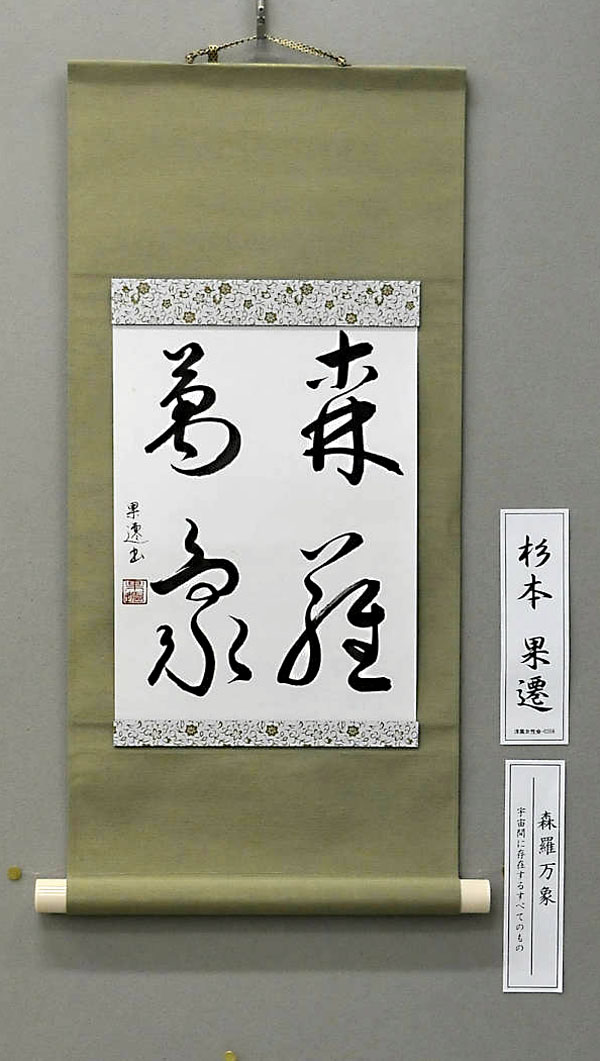 森羅
萬象
果遷出
杉本 果遷
森羅万象
宇宙間に存在するすべてのもの